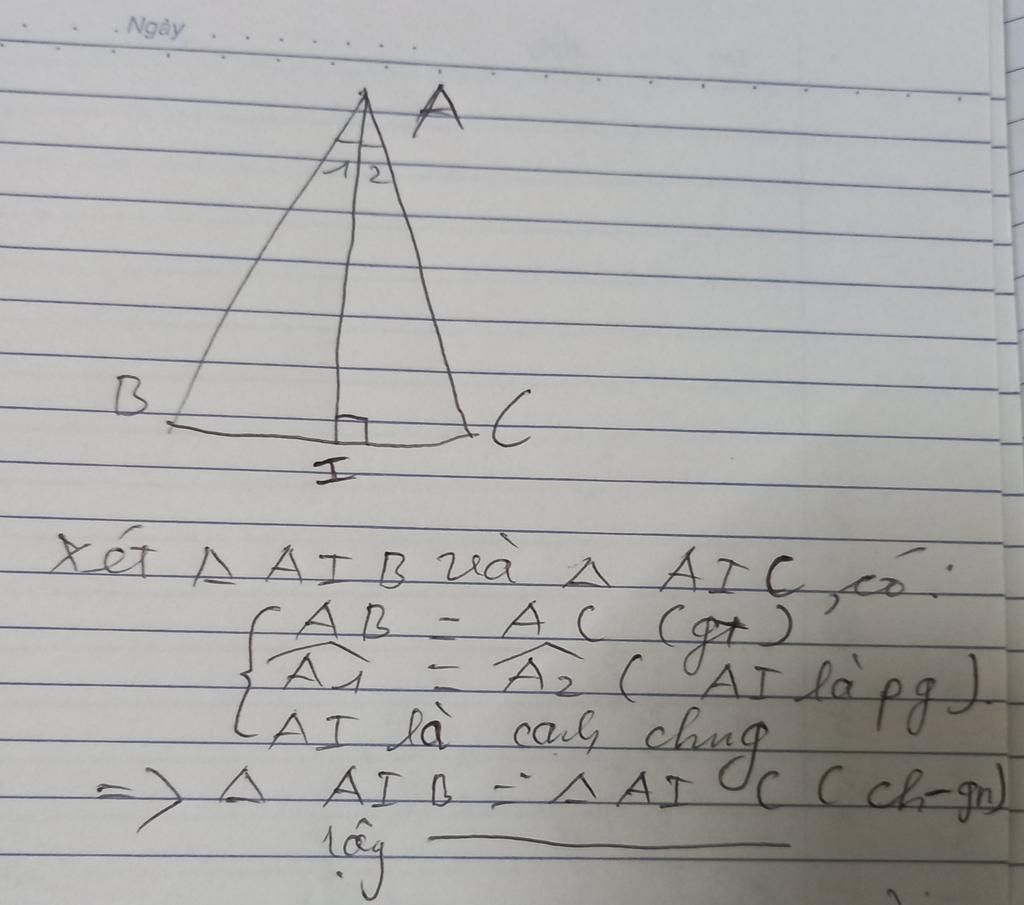 Ngày
A
1 2
B
C
I
Xét Δ AIB và Δ AIC, có:
AB = AC (gt)
Â1 = Â2 (AI là pg)
AI là cạnh chung
=> Δ AIB = Δ AIC (ch-gn)
Vậy